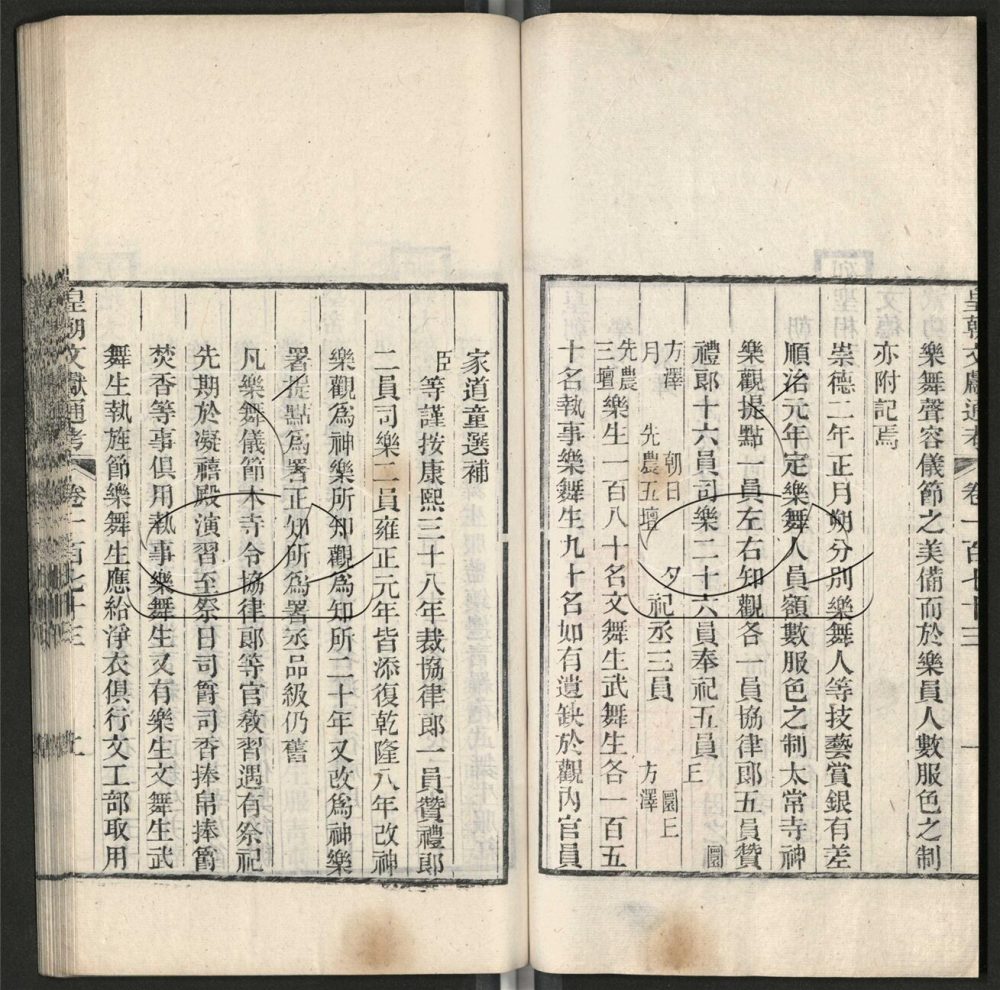 皇朝文獻通考 卷一百七十三
樂舞聲容儀節之美備而於樂員人數服色之制
亦附記焉
崇德二年正月朔分別樂舞人等技藝賞銀有差
順治元年定樂舞人員額數服色之制太常寺神
樂觀提點一員左右知觀各一員協律郎五員贊
禮郎十六員司樂二十六員奉祀五員
圜丘
方澤
朝日
夕
月
先農五壇
祀丞三員
圜丘
方澤
先農
三壇
樂生一百八十名文舞生武舞生各一百五
十名執事樂舞生九十名如有遺缺於觀內官員
家道童選補
臣等謹按康熙三十八年裁協律郎一員贊禮郎
二員司樂二員雍正元年皆添復乾隆八年改神
樂觀為神樂所知觀為知所二十年又改為神樂
署提點為署正知所為署丞品級仍舊
凡樂舞儀節本寺令協律郎等官教習遇有祭祀
先期於凝禧殿演習至祭日司爵司香捧帛捧爵
焚香等事俱用執事樂舞生又有樂生文舞生武
舞生執旌節樂舞生應給淨衣俱行文工部取用
皇朝文獻通考 卷一百七十三